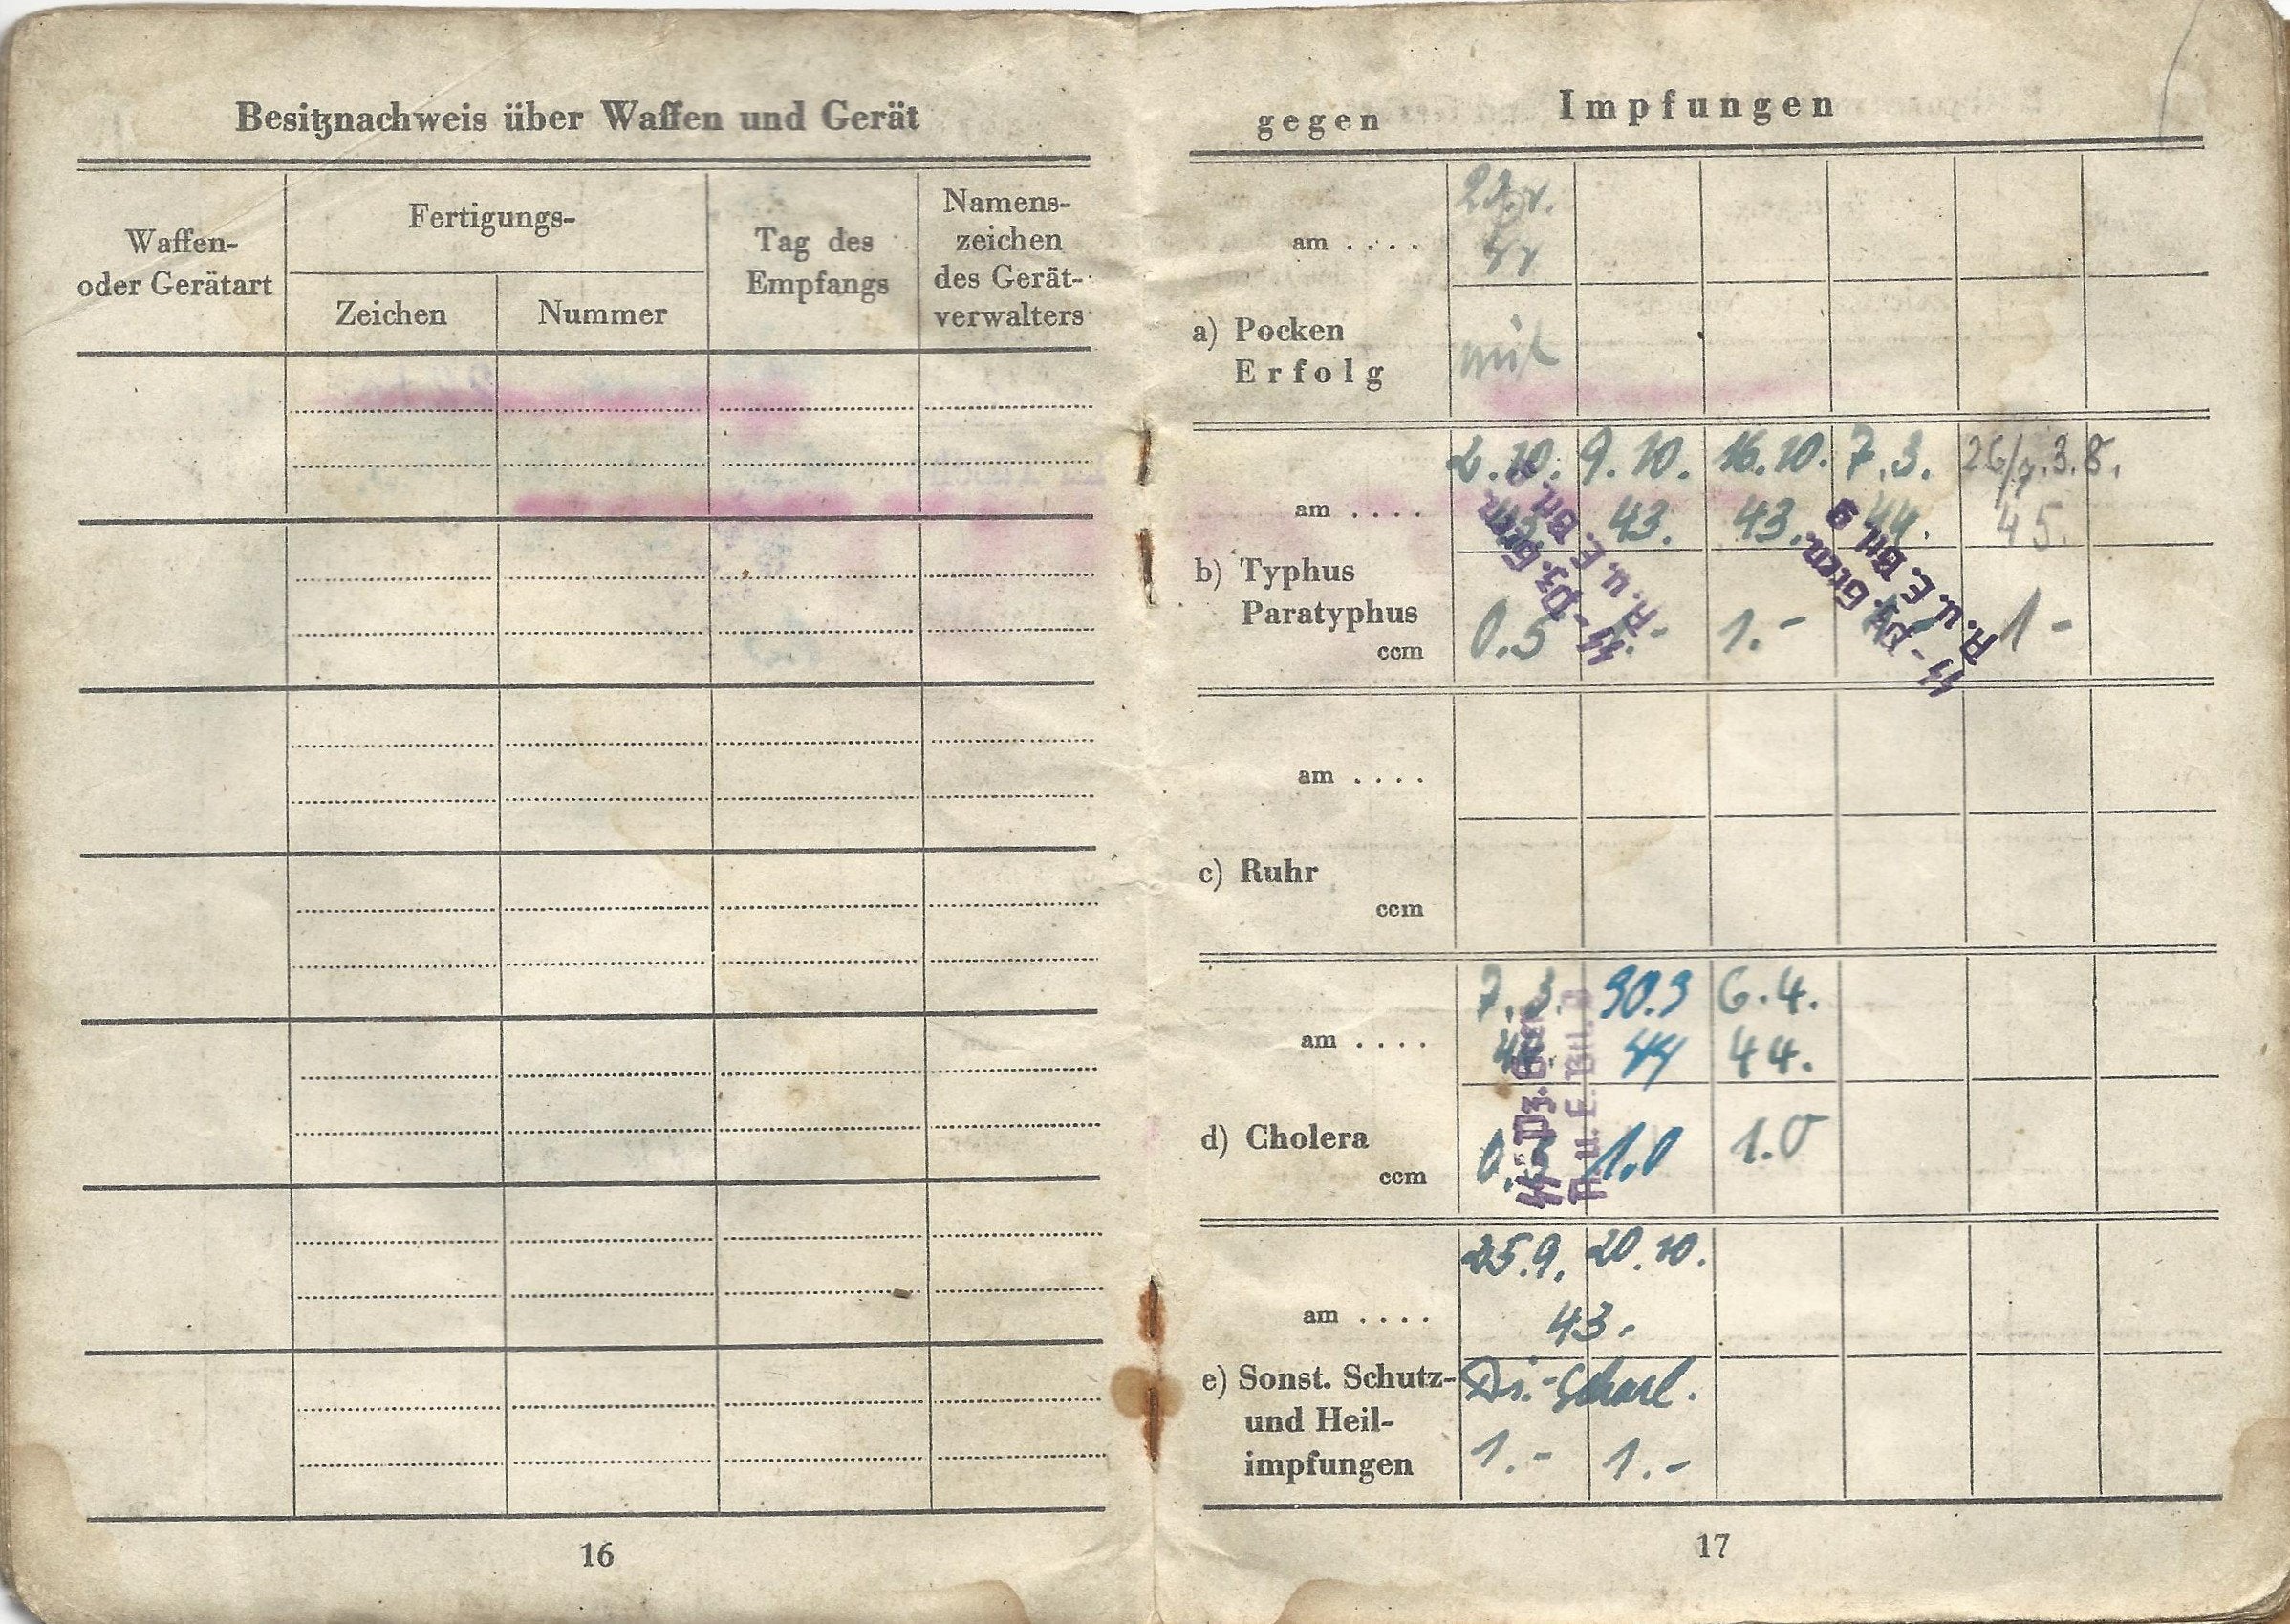 Besitznachweis über Waffen und Gerät
Waffen-
oder Gerätart
Fertigungs-
Zeichen
Nummer
Tag des
Empfangs
Namens-
zeichen
des Gerät-
verwalters
16
Impfungen
gegen
am . . . .
a) Pocken
Erfolg
mit
2.10. 9.10. 16.10. 7.3. 26/7. 3.8.
am . . . . 43. 43. 44. 45.
b) Typhus
Paratyphus
ccm 0.5 1.- 1-
SS-Pz. Gren.
A. u. E. Btl.
SS-Pz. Gren.
A. u. E. Btl. 9
am . . . .
c) Ruhr
ccm
7.3. 30.3 6.4.
am . . . . 44 44.
d) Cholera
ccm 1.0 1.0
SS-Pz. Gren.
A. u. E. Btl.
25.9. 20.10.
am . . . . 43.
e) Sonst. Schutz- Di.-Scharl.
und Heil-
impfungen 1.- 1.-
17